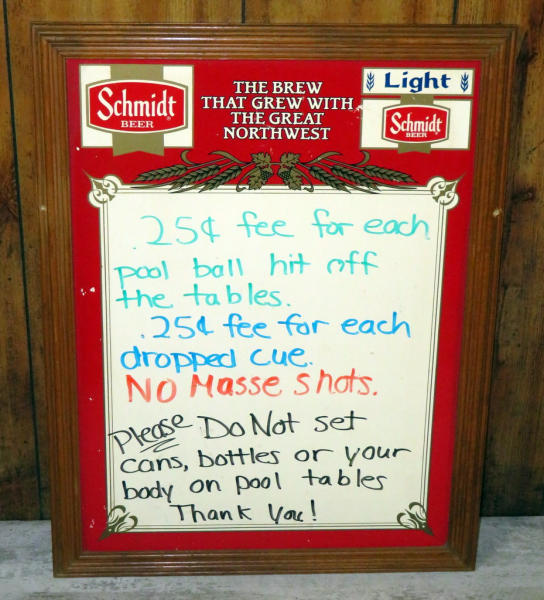 Schmidt
BEER
THE BREW
THAT GREW WITH
THE GREAT
NORTHWEST
Light
Schmidt
BEER
.25¢ fee for each
pool ball hit off
the tables.
.25¢ fee for each
dropped cue.
NO Masse shots.
Please Do Not set
cans, bottles or your
body on pool tables
Thank You!